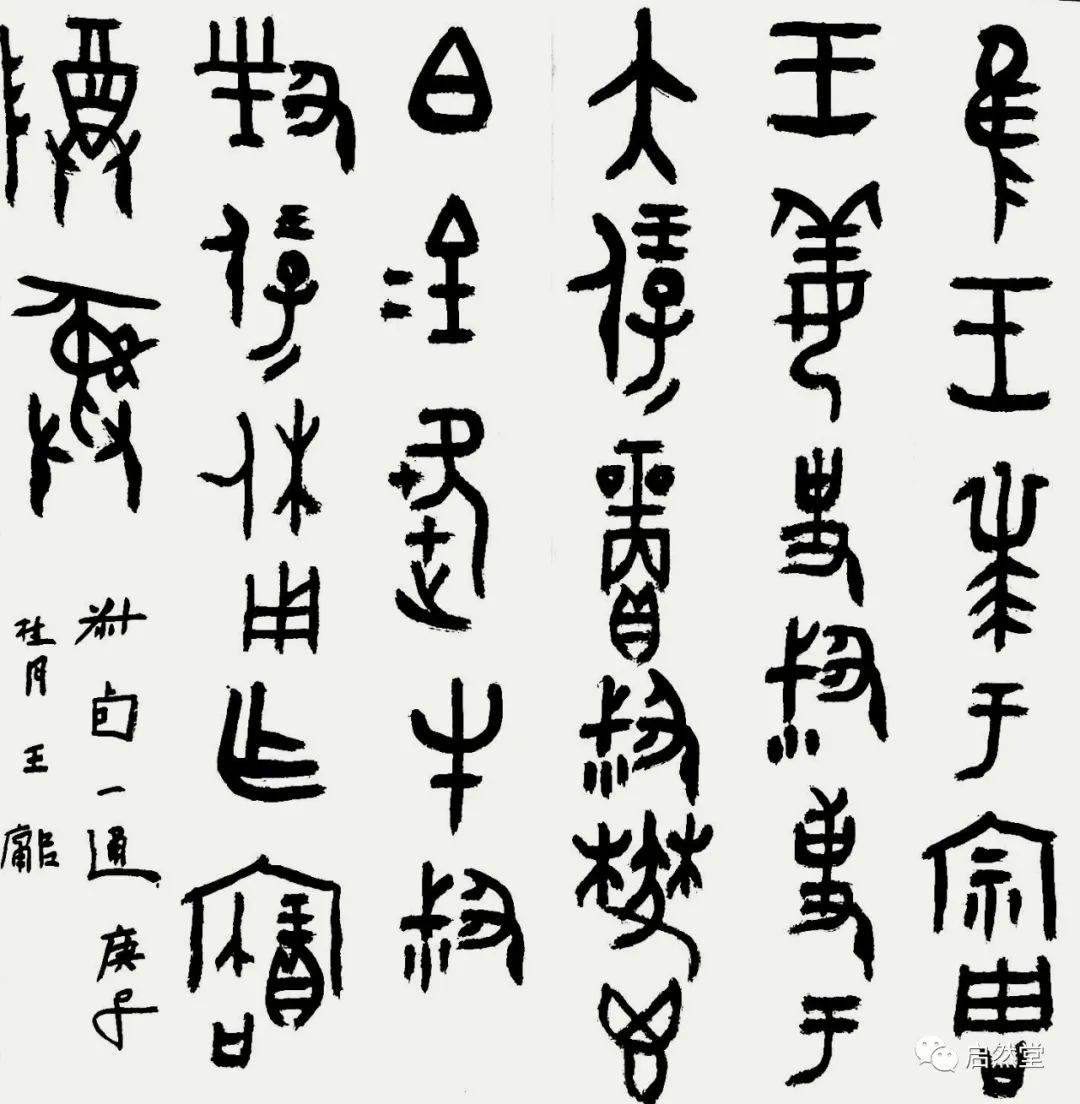 隹王𠦪于宗周
王姜史叔事于
大保賞叔鬱鬯
白金趞牛叔
對保休用乍寶
尊彝
叔卣一通 庚子
桂月 王
启然堂